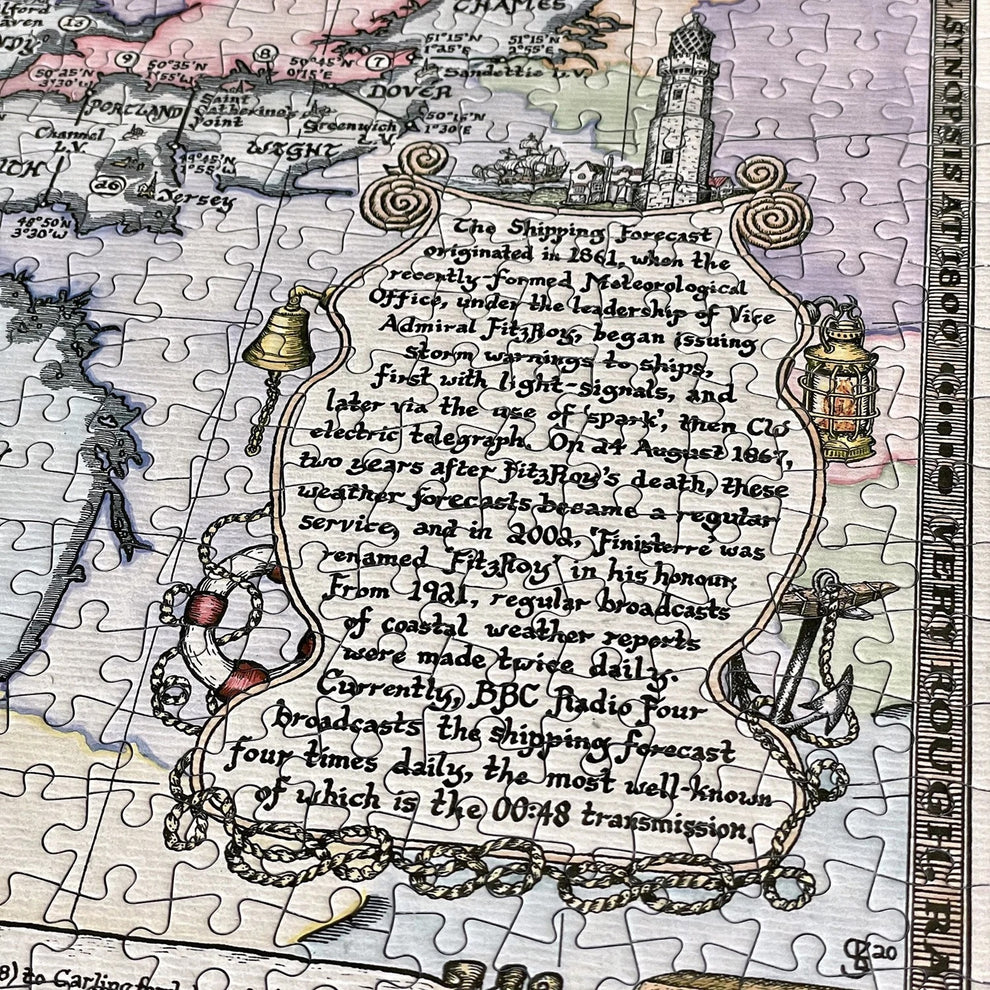 lford
aven
13
CHARLES
9
50°35'N
1°55'W
8
50°45'N
0°15'E
7
51°15'N
1°25'E
51°15'N
2°55'E
Sandettie L.V.
DOVER
50°25'N
3°30'W
PORTLAND
Saint
Catherine's
Point
Greenwich
L.V.
50°15'N
1°30'E
Channel
L.V.
WIGHT
49°45'N
1°55'W
26
Jersey
48°50'N
3°30'W
The Shipping Forecast
originated in 1861, when the
recently-formed Meteorological
Office, under the leadership of Vice
Admiral FitzRoy, began issuing
storm warnings to ships,
first with light-signals, and
later via the use of 'spark', then CW
electric telegraph. On 24 August 1867,
two years after FitzRoy's death, these
weather forecasts became a regular
service, and in 2002, 'Finisterre' was
renamed 'FitzRoy' in his honour.
From 1921, regular broadcasts
of coastal weather reports
were made twice daily.
Currently, BBC Radio Four
broadcasts the shipping forecast
four times daily, the most well-known
of which is the 00:48 transmission.
SYNOPSIS AT 1800
VERT TROUGH
20
8) to Carlingford